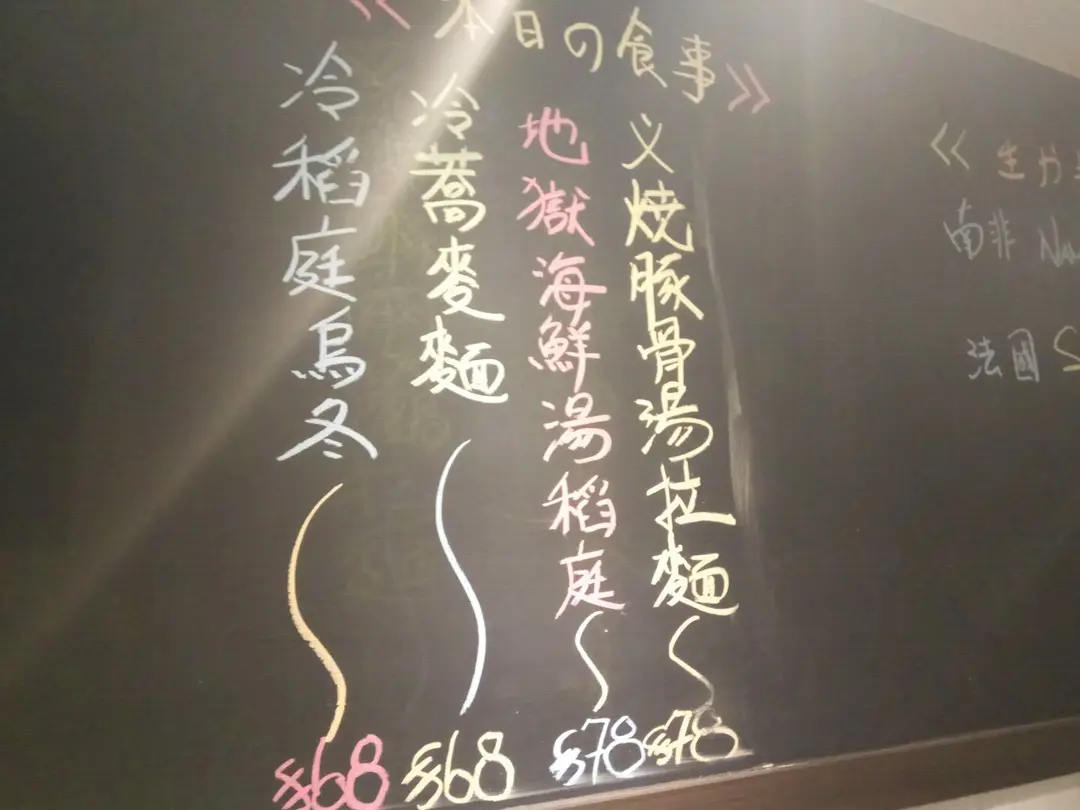 《本日の食事》
义燒豚骨湯拉麵 $78
地獄海鮮湯稻庭 $78
冷蕎麥麵 $68
冷稻庭烏冬 $68
《生
南非
法國 S